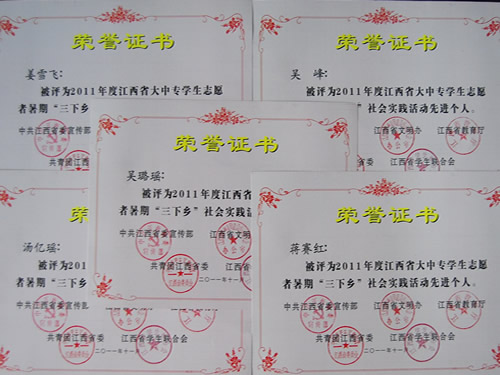 荣誉证书
姜雪飞：
被评为2011年度江西省大中专学生志愿
者暑期“三下乡
中共江西省委宣传部
共青团江西
荣誉证书
吴　峰：
被评为2011年度江西省大中专学生志愿
”社会实践活动先进个人。
江西省文明办　江西省教育厅
省委　江西省学生联合会
荣誉证书
吴璐瑶：
被评为2011年度江西省
者暑期“三下乡”社会实践活
中共江西省委宣传部　江西省文明办
共青团江西省委　江西省
二○一一年十一
汤亿瑶：
被评为201
者暑期“三下
中共江西省委宣传
共青团江西省委　江西省学生联合会
二○一一年十一月
荣誉证书
蒋赛红：
被评为2011年度江西省大中专学生志愿
者暑期“三下乡”社会实践活动先进个人。
中共江西省委宣传部　江西省文明办　江西省教育厅
共青团江西省委　江西省学生联合会
二○一一年十一月